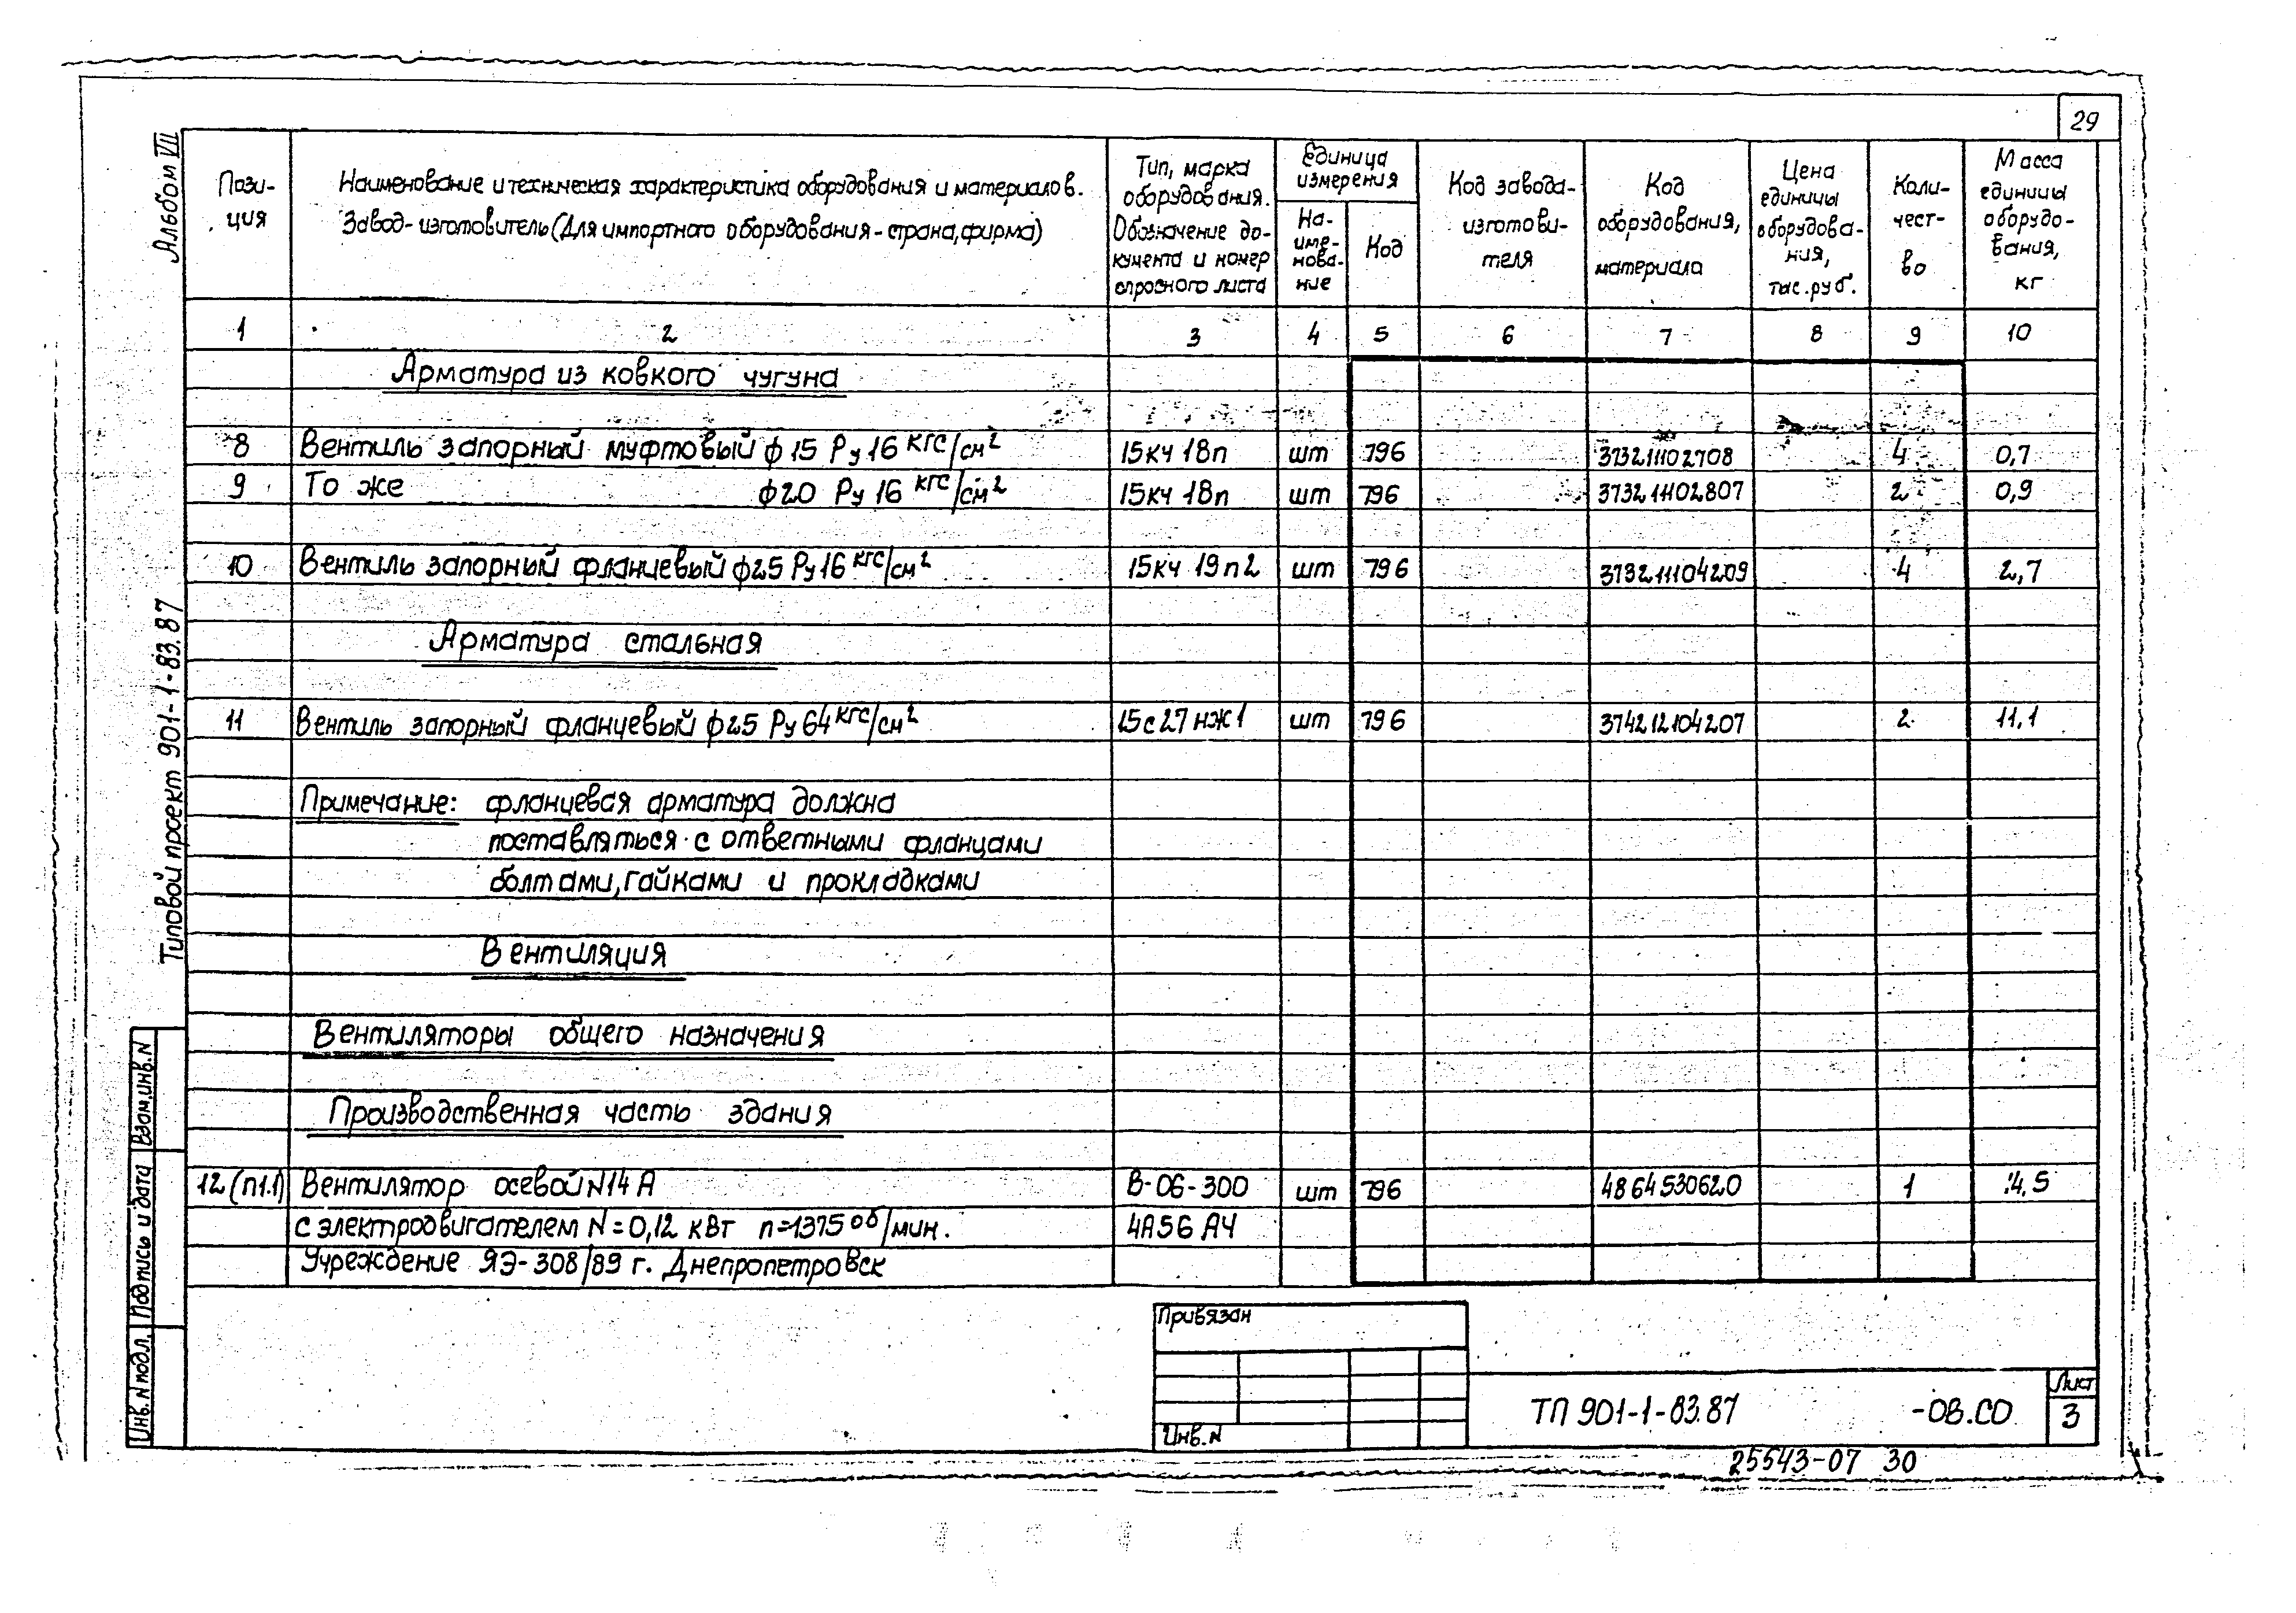 29
Альбом VII
Типовой проект 901-1-83.87
Пози-
ция
Наименование и техническая характеристика оборудования и материалов.
Завод-изготовитель (Для импортного оборудования - страна, фирма)
Тип, марка
оборудования.
Обозначение до-
кумента и номер
опросного листа
Единица
измерения
На-
име-
нова-
ние
Код
Код завода-
изготови-
теля
Код
оборудования,
материала
Цена
единицы
оборудова-
ния,
тыс. руб.
Коли-
чест-
во
Масса
единицы
оборудо-
вания,
кг
1 2 3 4 5 6 7 8 9 10
Арматура из ковкого чугуна
8 Вентиль запорный муфтовый ф 15 Ру 16 кгс/см² 15кч 18п шт 796 373211102708 4 0,7
9 То же ф20 Ру 16 кгс/см² 15кч 18п шт 796 373211102807 2 0,9
10 Вентиль запорный фланцевый ф25 Ру16 кгс/см² 15кч 19п2 шт 796 373211104209 4 2,7
Арматура стальная
11 Вентиль запорный фланцевый ф25 Ру 64 кгс/см² 15с27нж1 шт 796 374212104207 2 11,1
Примечание: фланцевая арматура должна
поставляться с ответными фланцами
болтами, гайками и прокладками
Вентиляция
Вентиляторы общего назначения
Производственная часть здания
12 (П1.1) Вентилятор осевой N14А В-06-300 шт 796 4864530620 1 14.5
с электродвигателем N=0,12 кВт n=1375 об/мин. 4А56А4
Учреждение ЯЭ-308/89 г. Днепропетровск
Взам.инв.N
Подпись и дата
Инв.N подл.
Привязан
Инв.N
ТП 901-1-83.87 -ОВ.СО
Лист
3
25543-07 30